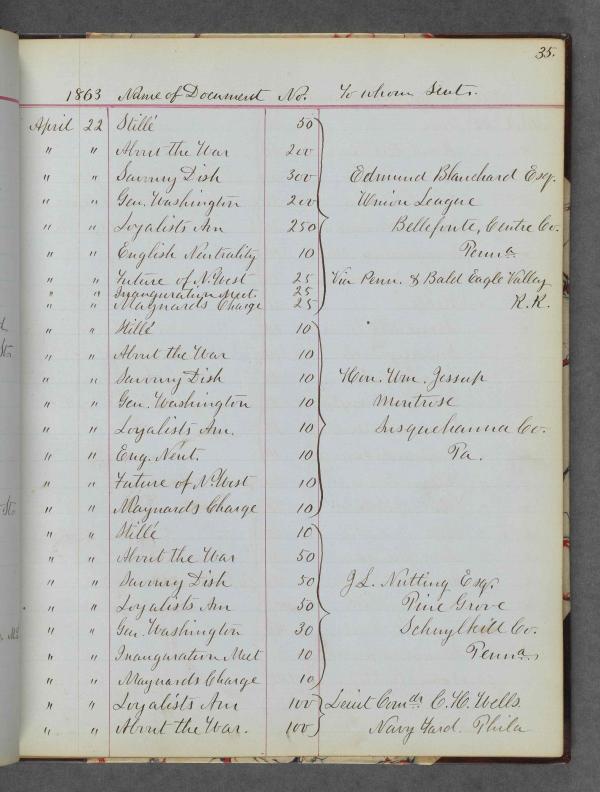 35.
1863 Name of Document No. To whom Sent.
April 22 Stillé 50
" " About the War 200
" " Savoury Dish 300 Edmund Blanchard Esq.
" " Gen. Washington 200 Union League
" " Loyalists Am 250 Bellefonte, Centre Co.
" " English Neutrality 10 Penna
" " Future of N. West 25 Via Penn. & Bald Eagle Valley
" " Inauguration Meet. 25
" " Maynards Charge 25 R.R.
" " Stillé 10
" " About the War 10
" " Savoury Dish 10 Hon. Wm. Jessup
" " Gen. Washington 10 Montrose
" " Loyalists Am. 10 Susquehanna Co.
" " Eng. Neut. 10 Pa.
" " Future of N. West 10
" " Maynards Charge 10
" " Stillé 10
" " About the War 50
" " Savoury Dish 50 J. L. Nutting Esq.
" " Loyalists Am 50 Pine Grove
" " Gen. Washington 30 Schuylkill Co.
" " Inauguration Meet 10 Penna
" " Maynards Charge 10
" " Loyalists Am 100 Lieut Comdr C. H. Wells
" " About the War. 100 Navy Yard. Phila